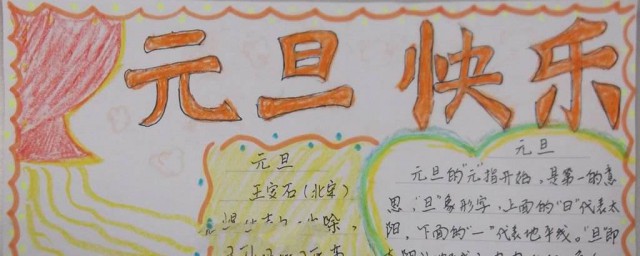 元旦快乐
元旦
王安石(北宋)
爆竹声中一岁除,
元旦
元旦的“元”指开始,是第一的意
思,“旦”象形字,上面的“日”代表太
阳,下面的“一”代表地平线。“旦”即